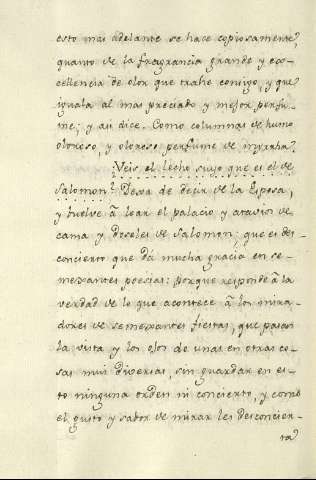 esto mas adelante se hace copiosamente,
quanto de la fragrancia grande y ex-
cellencia de olor que trahe consigo, y que
iguala al mas preciado y mejor perfu-
me; y asi dice. Como columnas de humo
oloroso, y oloroso perfume de myrrha?
Veis el lecho suyo que es el de
Salomon? Dexa de decir de la Esposa,
y buelve à loar el palacio y atavios de
cama y doseles de Salomon, que es des-
concierto que dá mucha gracia en se-
mexantes poesias: porque responde à la
verdad de lo que acontece à los mira-
dores de semexantes fiestas, que pasan
la vista y los ojos de unas en otras co-
sas mui diversas, sin guardar en es-
to ninguna orden ni concierto, y como
el gusto y sabor de mirar les desconcier-
ta